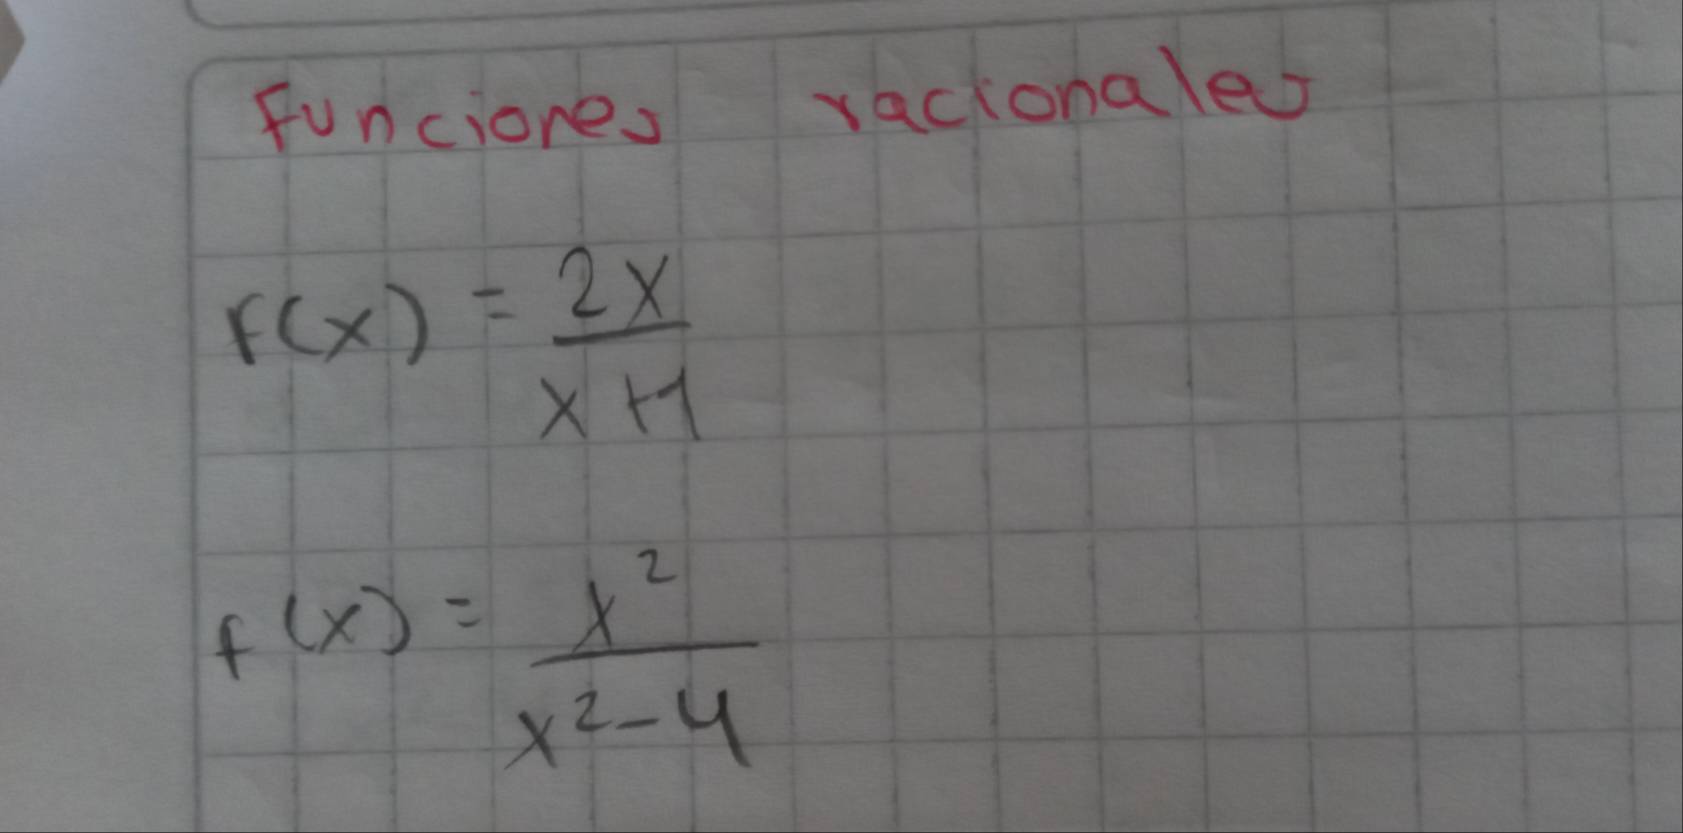 Funciones racionales
f(x) = 2x
x+1
f(x) = x²
x²-4